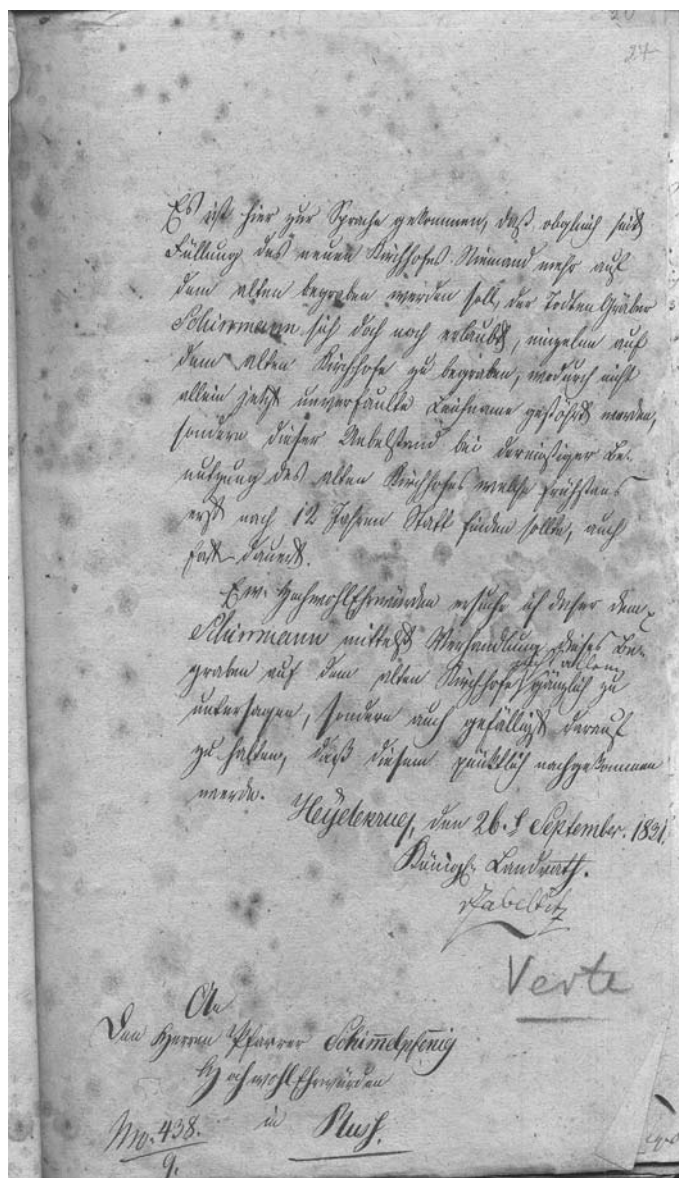 24
Es ist hier zur Sprache gekommen, daß obgleich seit
Füllung des neuen Kirchhofes Niemand mehr auf
dem alten begraben werden soll, der Todten Gräber
Schirrmann sich doch noch erlaubt, einzeln auf
dem alten Kirchhofe zu begraben, wodurch nicht
allein jetzt unverfaulte Leichname gestöhrt werden,
sondern dieser Uebelstand bei dereinstiger Be-
nutzung des alten Kirchhofes welche frühstens
erst nach 12 Jahren Statt finden sollte, auch
fort dauert.
Ew. HochwohlEhrwürden ersuche ich daher dem
Schirrmann mittelst Verhandlung dieses Be-
graben auf dem alten Kirchhofe gänzlich zu
untersagen, sondern auch gefälligst darauf
zu halten, daß diesem pünktlich nachgekommen
werde.
Heydekrug, den 26. September. 1831.
Königl. Landrath.
Verte
An
Den Herren Pfarrer Schimelpfenig
HochwohlEhrwürden
in Ruß.
No. 438.
9.